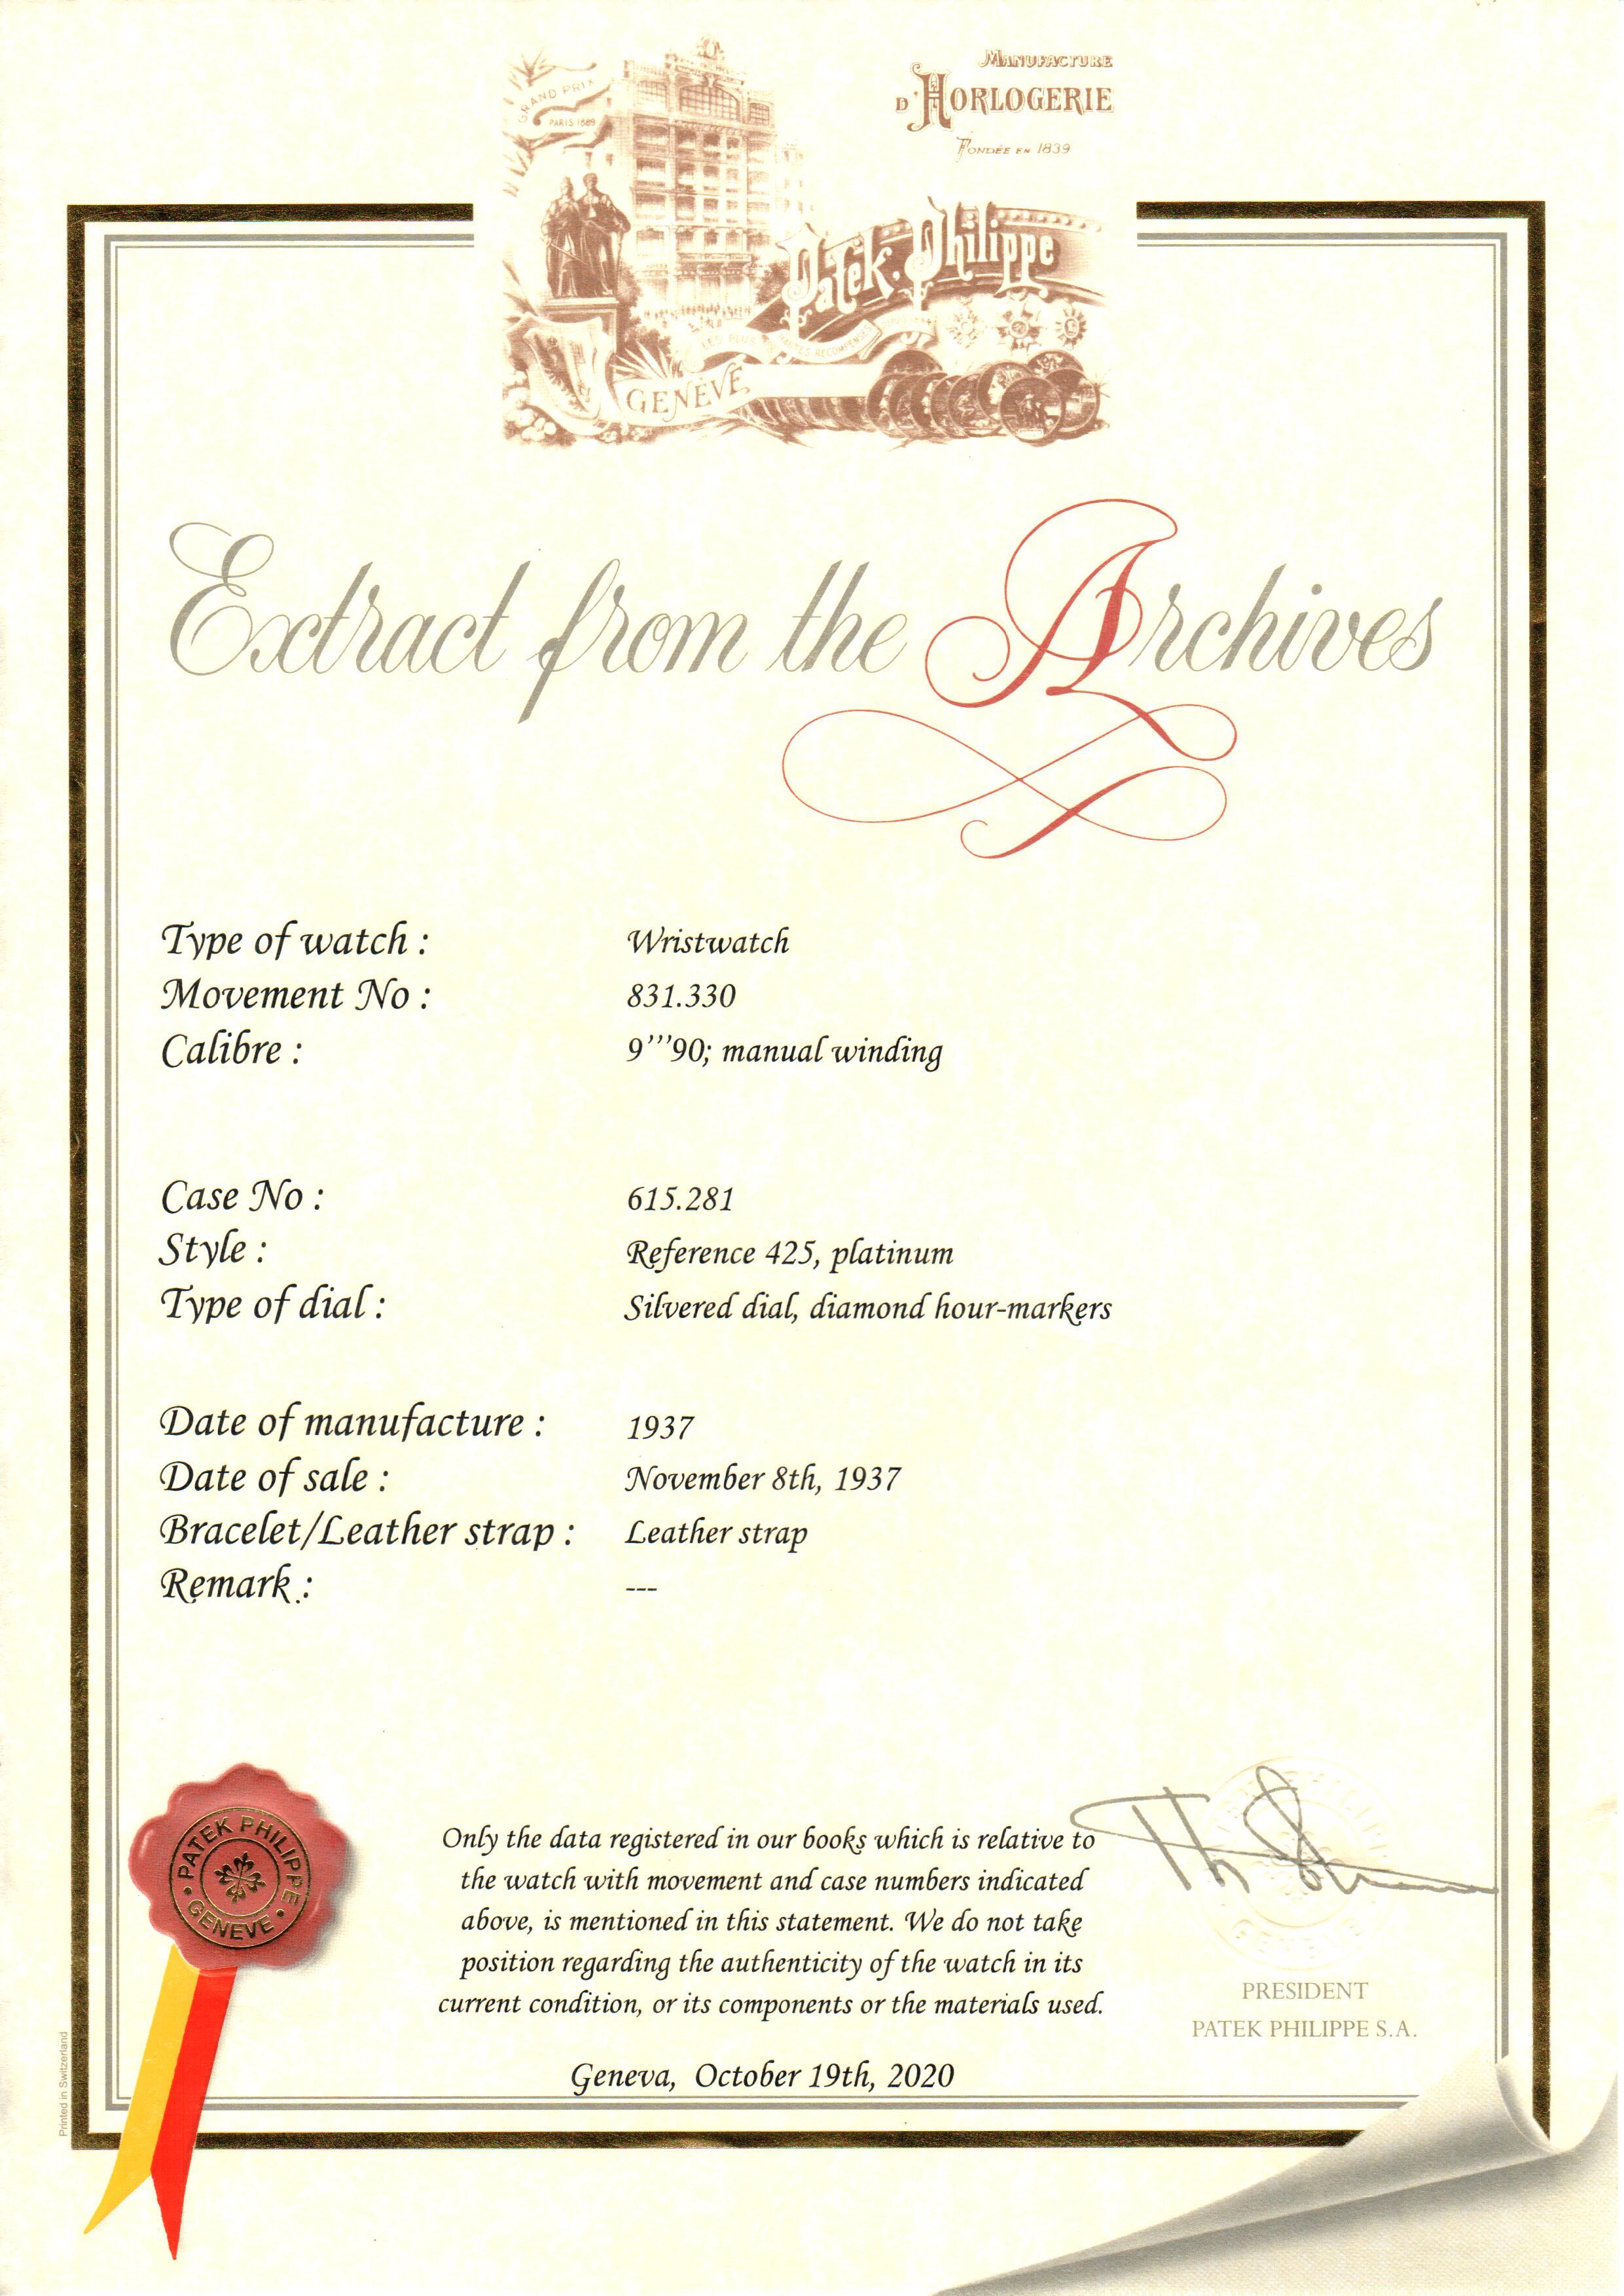 GRAND PRIX
PARIS 1889
MANUFACTURE
D'HORLOGERIE
FONDÉE EN 1839
Patek. Philippe
LES PLUS HAUTES RECOMPENSES
GENÈVE
Extract from the Archives
Type of watch : Wristwatch
Movement No : 831.330
Calibre : 9'''90; manual winding
Case No : 615.281
Style : Reference 425, platinum
Type of dial : Silvered dial, diamond hour-markers
Date of manufacture : 1937
Date of sale : November 8th, 1937
Bracelet/Leather strap : Leather strap
Remark : ---
PATEK PHILIPPE
GENEVE
Only the data registered in our books which is relative to
the watch with movement and case numbers indicated
above, is mentioned in this statement. We do not take
position regarding the authenticity of the watch in its
current condition, or its components or the materials used.
PRESIDENT
PATEK PHILIPPE S.A.
Geneva, October 19th, 2020
Printed in Switzerland